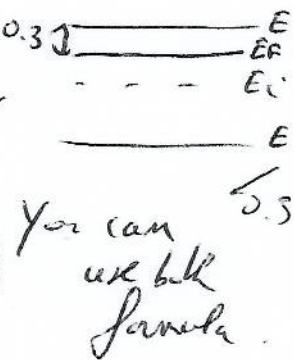 0.3
E
EF
Ei
E
You can
use both
formula